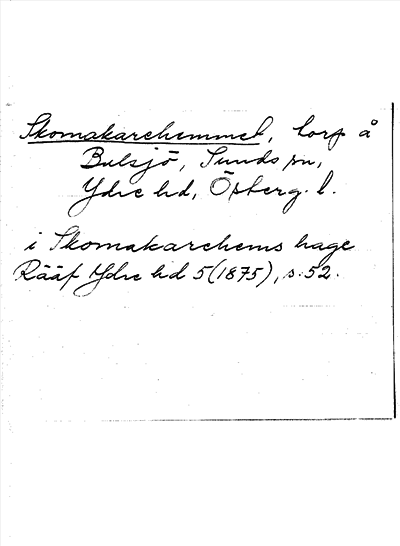 Skomakarehemmet, torp å
Bulsjö, Sunds sn,
Ydre hd, Österg. l.
i Skomakarehems hage
Rääf Ydre hd 5 (1875), s. 52.